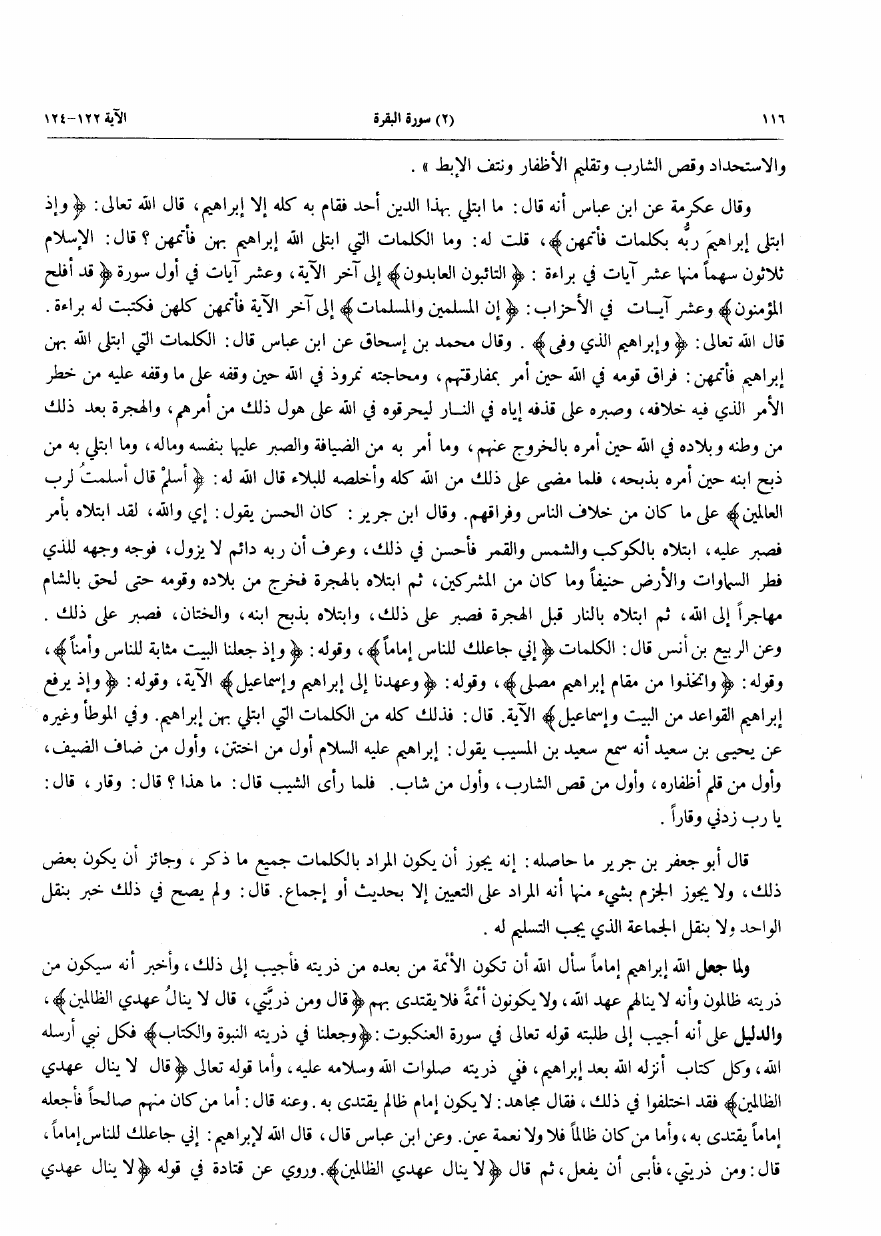 ١١٦ (٢) سورة البقرة الآية ١٢٢-١٢٤
والاستحداد وقص الشارب وتقليم الأظفار ونتف الإبط » .
وقال عكرمة عن ابن عباس أنه قال: ما ابتلي بهذا الدين أحد فقام به كله إلا إبراهيم، قال الله تعالى: ﴿ وإذ
ابتلى إبراهيمَ ربُّه بكلمات فأتمهن﴾، قلت له: وما الكلمات التي ابتلى الله إبراهيم بهن فأتمهن ؟ قال: الإسلام
ثلاثون سهماً منها عشر آيات في براءة : ﴿ التائبون العابدون﴾ إلى آخر الآية، وعشر آيات في أول سورة ﴿ قد أفلح
المؤمنون﴾ وعشر آيات في الأحزاب: ﴿ إن المسلمين والمسلمات﴾ إلى آخر الآية فأتمهن كلهن فكتبت له براءة .
قال الله تعالى: ﴿ وإبراهيم الذي وفى﴾ . وقال محمد بن إسحاق عن ابن عباس قال: الكلمات التي ابتلى الله بهن
إبراهيم فأتمهن: فراق قومه في الله حين أمر بمفارقتهم، ومحاجته نمروذ في الله حين وقفه على ما وقفه عليه من خطر
الأمر الذي فيه خلافه، وصبره على قذفه إياه في النـار ليحرقوه في الله على هول ذلك من أمرهم، والهجرة بعد ذلك
من وطنه وبلاده في الله حين أمره بالخروج عنهم، وما أمر به من الضيافة والصبر عليها بنفسه وماله، وما ابتلي به من
ذبح ابنه حين أمره بذبحه، فلما مضى على ذلك من الله كله وأخلصه للبلاء قال الله له: ﴿ أسلمْ قال أسلمتُ لرب
العالمين﴾ على ما كان من خلاف الناس وفراقهم. وقال ابن جرير : كان الحسن يقول: إي والله، لقد ابتلاه بأمر
فصبر عليه، ابتلاه بالكوكب والشمس والقمر فأحسن في ذلك، وعرف أن ربه دائم لا يزول، فوجه وجهه للذي
فطر السماوات والأرض حنيفاً وما كان من المشركين، ثم ابتلاه بالهجرة فخرج من بلاده وقومه حتى لحق بالشام
مهاجراً إلى الله، ثم ابتلاه بالنار قبل الهجرة فصبر على ذلك، وابتلاه بذبح ابنه، والختان، فصبر على ذلك .
وعن الربيع بن أنس قال: الكلمات ﴿ إني جاعلك للناس إماماً﴾، وقوله: ﴿ وإذ جعلنا البيت مثابة للناس وأمناً﴾،
وقوله: ﴿ واتخذوا من مقام إبراهيم مصلى﴾، وقوله: ﴿ وعهدنا إلى إبراهيم وإسماعيل﴾ الآية، وقوله: ﴿ وإذ يرفع
إبراهيم القواعد من البيت وإسماعيل﴾ الآية. قال: فذلك كله من الكلمات التي ابتلي بهن إبراهيم. وفي الموطأ وغيره
عن يحيى بن سعيد أنه سمع سعيد بن المسيب يقول: إبراهيم عليه السلام أول من اختتن، وأول من ضاف الضيف،
وأول من قلم أظفاره، وأول من قص الشارب، وأول من شاب. فلما رأى الشيب قال: ما هذا ؟ قال: وقار، قال:
يا رب زدني وقاراً .
قال أبو جعفر بن جرير ما حاصله: إنه يجوز أن يكون المراد بالكلمات جميع ما ذكر ، وجائز أن يكون بعض
ذلك، ولا يجوز الجزم بشيء منها أنه المراد على التعيين إلا بحديث أو إجماع. قال: ولم يصح في ذلك خبر بنقل
الواحد ولا بنقل الجماعة الذي يجب التسليم له .
ولما جعل الله إبراهيم إماماً سأل الله أن تكون الأئمة من بعده من ذريته فأجيب إلى ذلك، وأخبر أنه سيكون من
ذريته ظالمون وأنه لا ينالهم عهد الله، ولا يكونون أئمةً فلا يقتدى بهم ﴿ قال ومن ذريَّتي، قال لا ينالُ عهدي الظالمين﴾،
والدليل على أنه أجيب إلى طلبته قوله تعالى في سورة العنكبوت: ﴿وجعلنا في ذريته النبوة والكتاب﴾ فكل نبي أرسله
الله، وكل كتاب أنزله الله بعد إبراهيم، ففي ذريته صلوات الله وسلامه عليه، وأما قوله تعالى ﴿ قال لا ينال عهدي
الظالمين﴾ فقد اختلفوا في ذلك، فقال مجاهد: لا يكون إمام ظالم يقتدى به. وعنه قال: أما من كان منهم صالحاً فأجعله
إماماً يقتدى به، وأما من كان ظالماً فلا ولا نعمة عين. وعن ابن عباس قال، قال الله لإبراهيم: إني جاعلك للناس إماماً،
قال: ومن ذريتي، فأبى أن يفعل، ثم قال ﴿ لا ينال عهدي الظالمين﴾. وروي عن قتادة في قوله ﴿ لا ينال عهدي